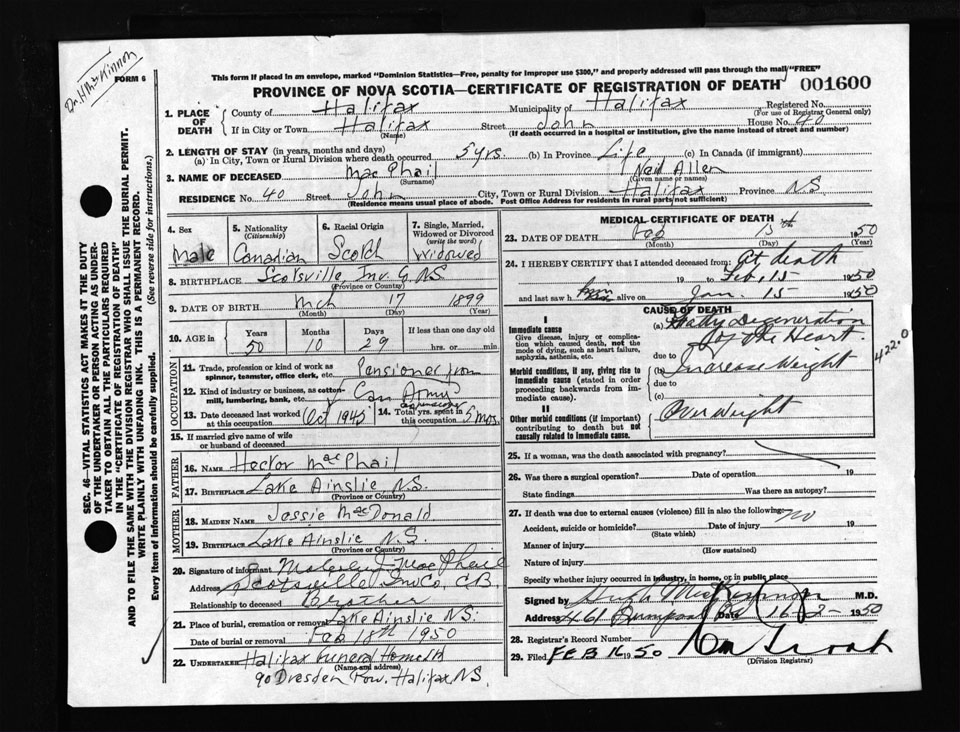 Dr. H Mc Kinnon
FORM 6
This form if placed in an envelope, marked "Dominion Statistics—Free, penalty for improper use $300," and properly addressed will pass through the mail "FREE"
PROVINCE OF NOVA SCOTIA—CERTIFICATE OF REGISTRATION OF DEATH 001600
1. PLACE OF DEATH County of Halifax Municipality of Halifax Registered No.
(For use of Registrar General only)
If in City or Town Halifax Street John House No. 40
(Name) (If death occurred in a hospital or institution, give the name instead of street and number)
2. LENGTH OF STAY (in years, months and days)
(a) In City, Town or Rural Division where death occurred 5 yrs. (b) In Province Life (c) In Canada (if immigrant)
3. NAME OF DECEASED Mac Phail Neil Allen
(Surname) (Given name or names)
RESIDENCE No. 40 Street John City, Town or Rural Division Halifax Province NS
(Residence means usual place of abode. Post Office Address for residents in rural parts not sufficient)
4. Sex Male
5. Nationality (Citizenship) Canadian
6. Racial Origin Scotch
7. Single, Married, Widowed or Divorced (write the word) Widowed
8. BIRTHPLACE Scotsville, Inv. Co. N.S.
(Province or Country)
9. DATE OF BIRTH Mch 17 1899
(Month) (Day) (Year)
10. AGE in Years Months Days If less than one day old
50 10 29 hrs. or min.
OCCUPATION
11. Trade, profession or kind of work as spinner, teamster, office clerk, etc. Pensioner from
12. Kind of industry or business, as cotton-mill, lumbering, bank, etc. Can Army
13. Date deceased last worked at this occupation Oct 1945
14. Total yrs. spent in this occupation 5 yrs.
15. If married give name of wife or husband of deceased
FATHER
16. NAME Hector MacPhail
17. BIRTHPLACE Lake Ainslie, N.S.
(Province or Country)
MOTHER
18. MAIDEN NAME Jessie MacDonald
19. BIRTHPLACE Lake Ainslie N.S.
(Province or Country)
20. Signature of informant MacPhail
Address Scotsville Inv Co, C.B.
Relationship to deceased Brother
21. Place of burial, cremation or removal Lake Ainslie NS.
Date of burial or removal Feb 18th 1950
22. UNDERTAKER Halifax Funeral Home
(Name and address)
90 Dresden Row, Halifax NS.
MEDICAL CERTIFICATE OF DEATH
23. DATE OF DEATH Feb 15th 1950
(Month) (Day) (Year)
24. I HEREBY CERTIFY that I attended deceased from: At death
19 to Feb, 15 1950
and last saw h him alive on Jan. 15 1950
CAUSE OF DEATH
I
Immediate cause
Give disease, injury or complication which caused death, not the mode of dying, such as heart failure, asphyxia, asthenia, etc.
(a) Fatty Degeneration of the Heart.
422.0
due to
Morbid conditions, if any, giving rise to immediate cause (stated in order proceeding backwards from immediate cause).
(b) Increase Weight
due to
(c)
II
Other morbid conditions (if important) contributing to death but not causally related to immediate cause.
Over Weight
25. If a woman, was the death associated with pregnancy?
26. Was there a surgical operation? Date of operation 19
State findings Was there an autopsy?
27. If death was due to external causes (violence) fill in also the following: no
Accident, suicide or homicide? Date of injury 19
(State which)
Manner of injury
(How sustained)
Nature of injury
Specify whether injury occurred in industry, in home, or in public place
Signed by Hugh MacKinnon M.D.
Address Date 16-2- 1950
28. Registrar's Record Number
29. Filed FEB 16 1950
(Division Registrar)
SEC. 46—VITAL STATISTICS ACT MAKES IT THE DUTY
OF THE UNDERTAKER OR PERSON ACTING AS UNDER-
TAKER TO OBTAIN ALL THE PARTICULARS REQUIRED
IN THE "CERTIFICATE OF REGISTRATION OF DEATH"
AND TO FILE THE SAME WITH THE DIVISION REGISTRAR WHO SHALL ISSUE THE BURIAL PERMIT.
WRITE PLAINLY WITH UNFADING INK. THIS IS A PERMANENT RECORD.
Every item of information should be carefully supplied. (See reverse side for instructions.)